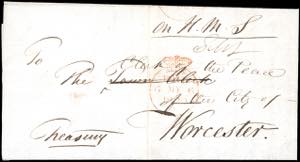 on H M S
To Clerk of the Peace
The Town Clerk
of the City of
Worcester.
Treasury